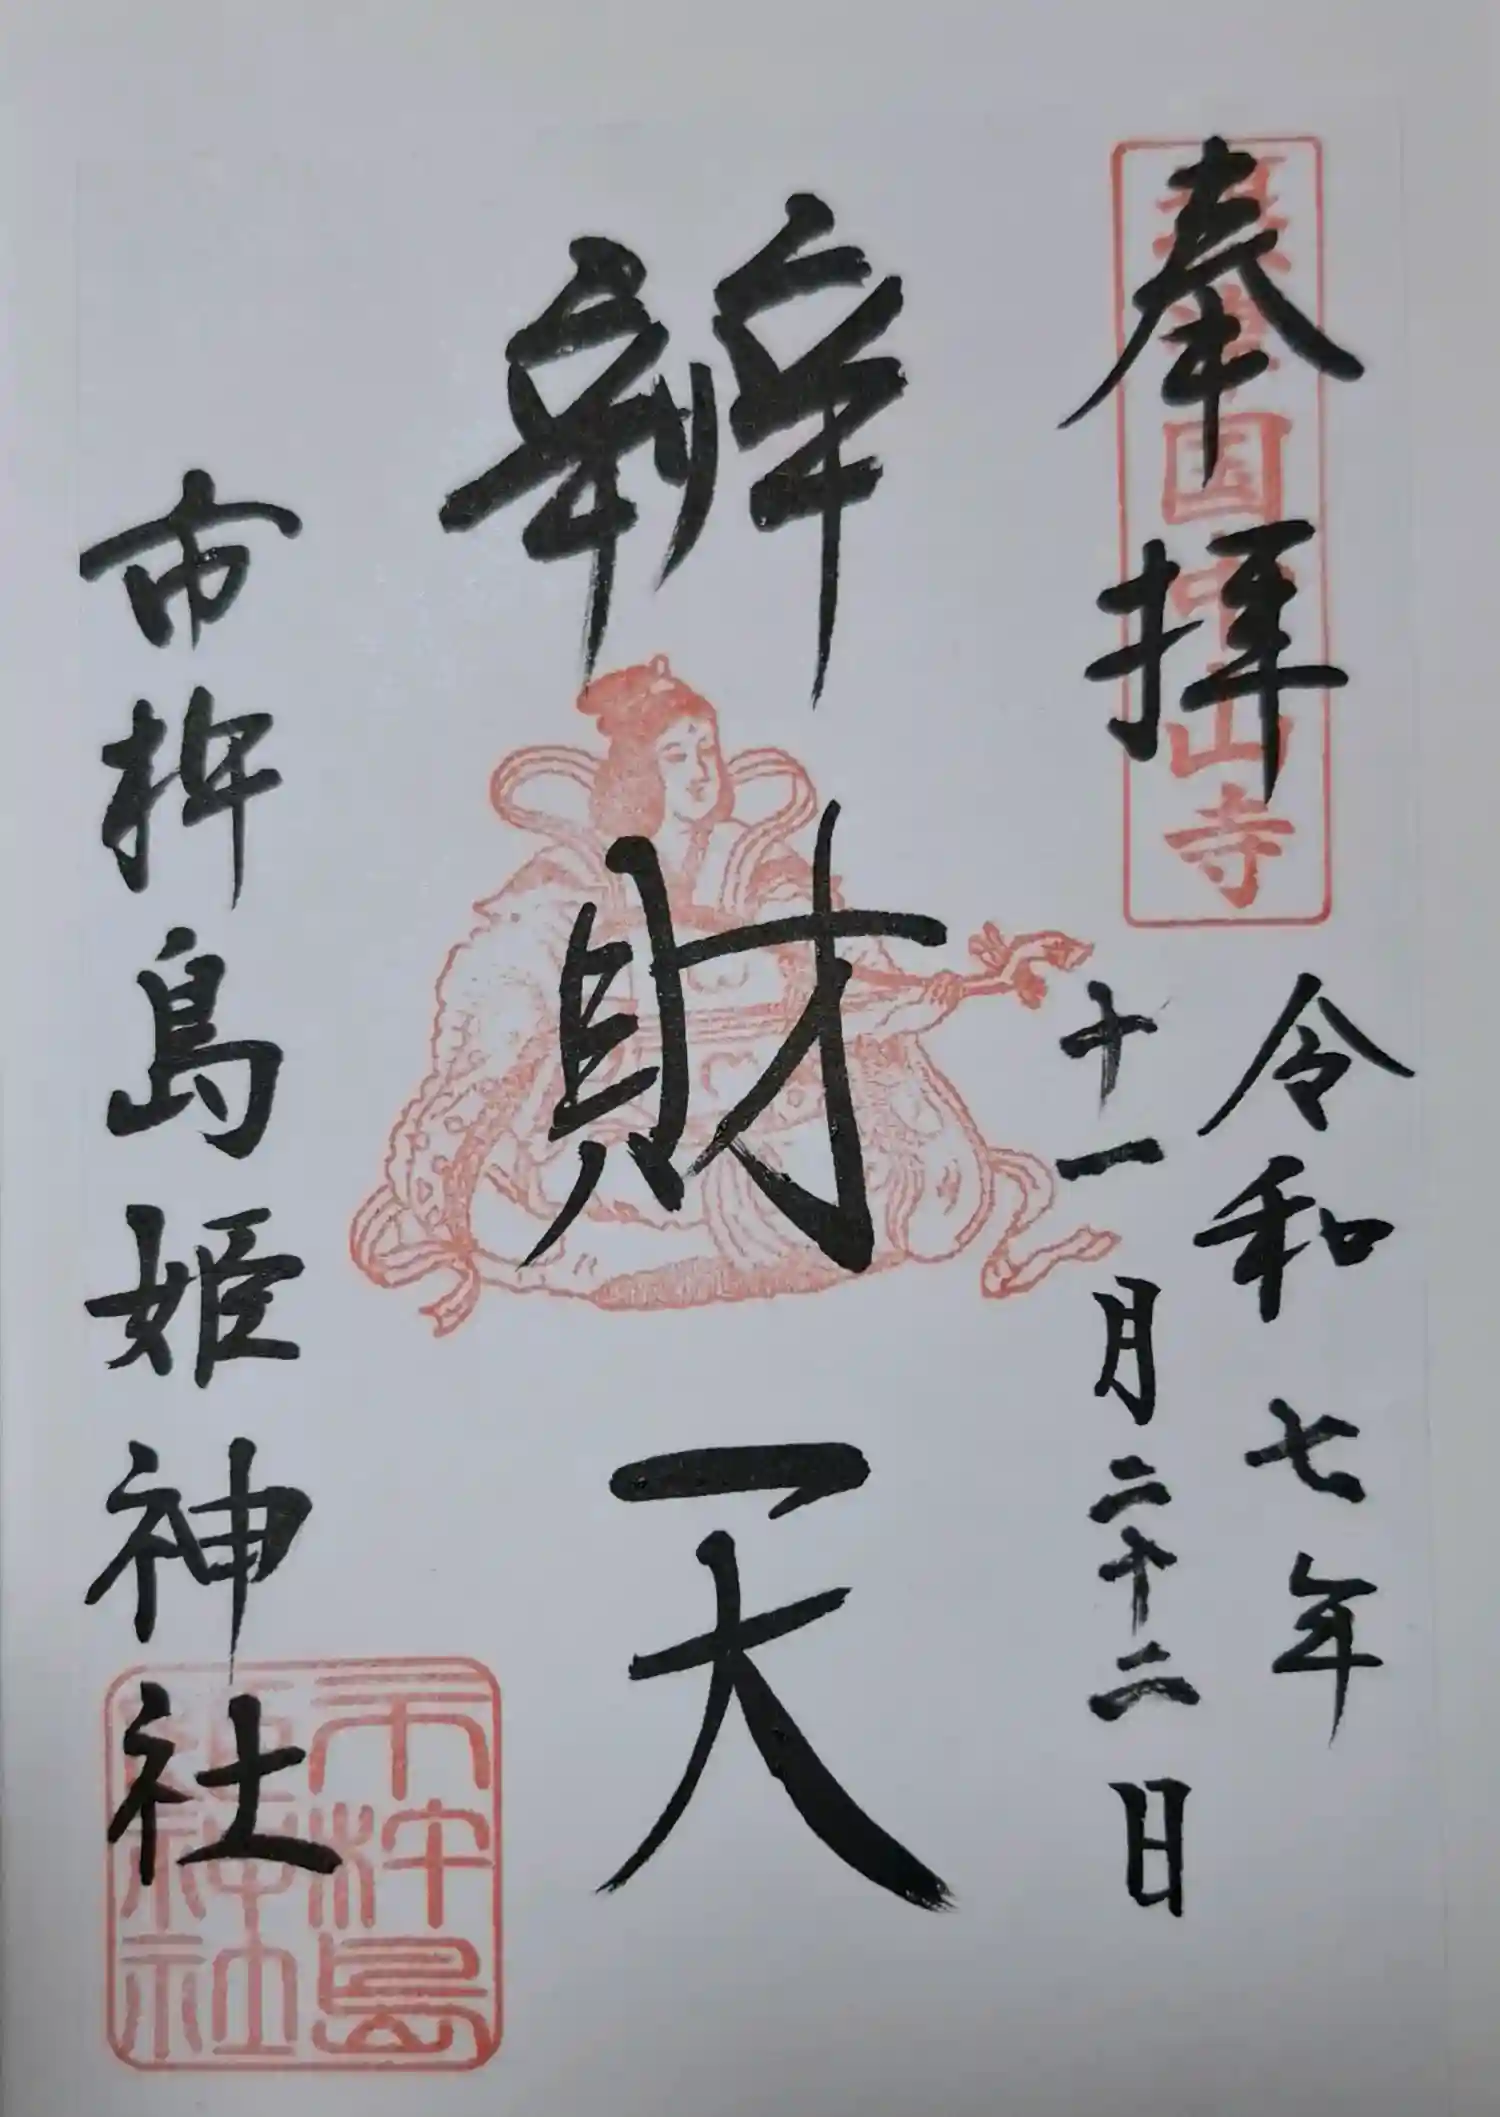 奉拝
摂津国中山寺
令和七年
十一月二十二日
辨財天
市杵島姫神社
市杵島
姫神社